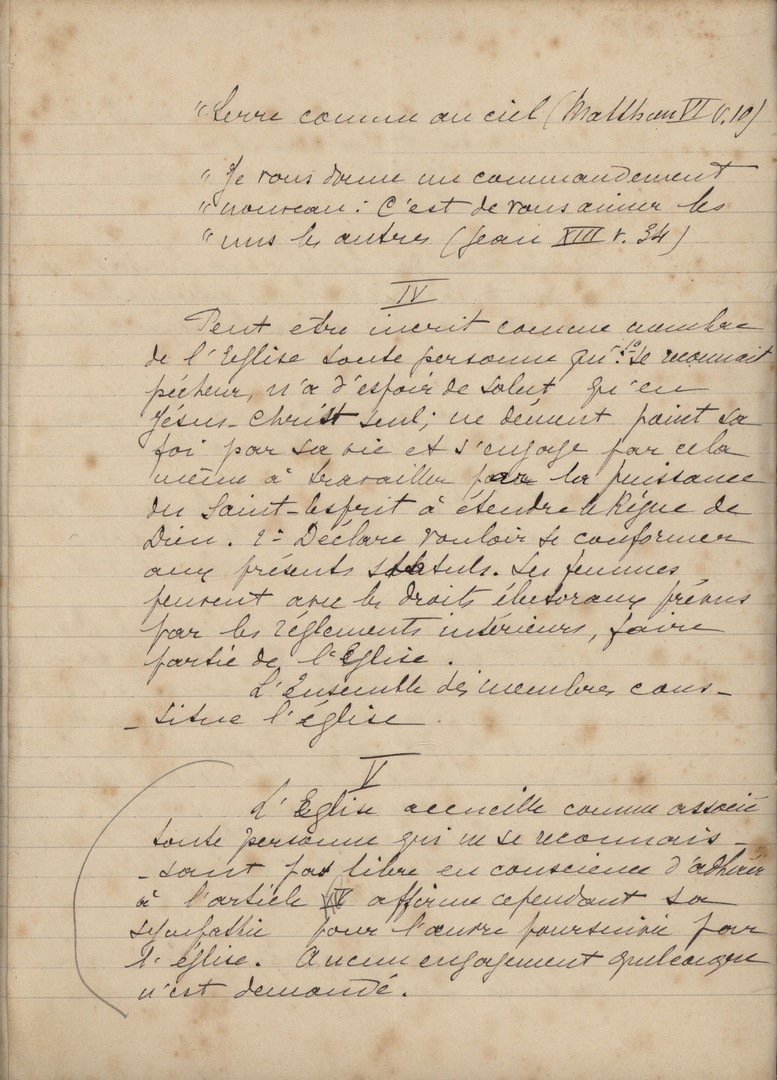 "terre comme au ciel (Matthieu VI v. 10)
"Je vous donne un commandement
"nouveau : C'est de vous aimer les
"uns les autres (Jean XIII v. 34)
IV
Peut etre inscrit comme membre
de l'Eglise toute personne qui : 1º se reconnait
pécheur, n'a d'espoir de salut qu'en
Jésus-Christ seul ; ne dément point sa
foi par sa vie et s'engage par cela
même à travailler par la puissance
du Saint-Esprit à étendre le Règne de
Dieu. 2º Déclare vouloir se conformer
aux présents statuts. Les femmes
peuvent avec les droits électoraux prévus
par les réglements intérieurs, faire
partie de l'Eglise.
L'Ensemble des membres cons-
-titue l'église.
V
L'Eglise accueille comme associé
toute personne qui ne se reconnais-
-sant pas libre en conscience d'adhérer
à l'article IV affirme cependant sa
sympathie pour l'œuvre poursuivie par
l'église. Aucun engagement quelconque
n'est demandé.